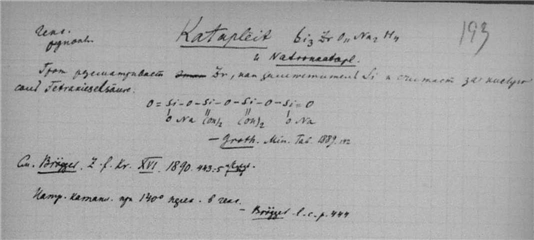 Гекс.
Katapleit Si3 Zr O11 Na2 H4
193
и Natronkatapl.
Грот рассматривает Zr, как заместитель Si и считает за кислую
соль Tetrakieselsäure.
O = Si - O - Si - O - Si - O - Si = O
O Na (OH)2 (OH)2 O Na
— Groth. Min. Tab. 1889.
См. Brögger. Z. f. Kr. XVI. 1890. 443.
Натр. катапл. при 140° в гекс.
— Brögger l. c. p. 444